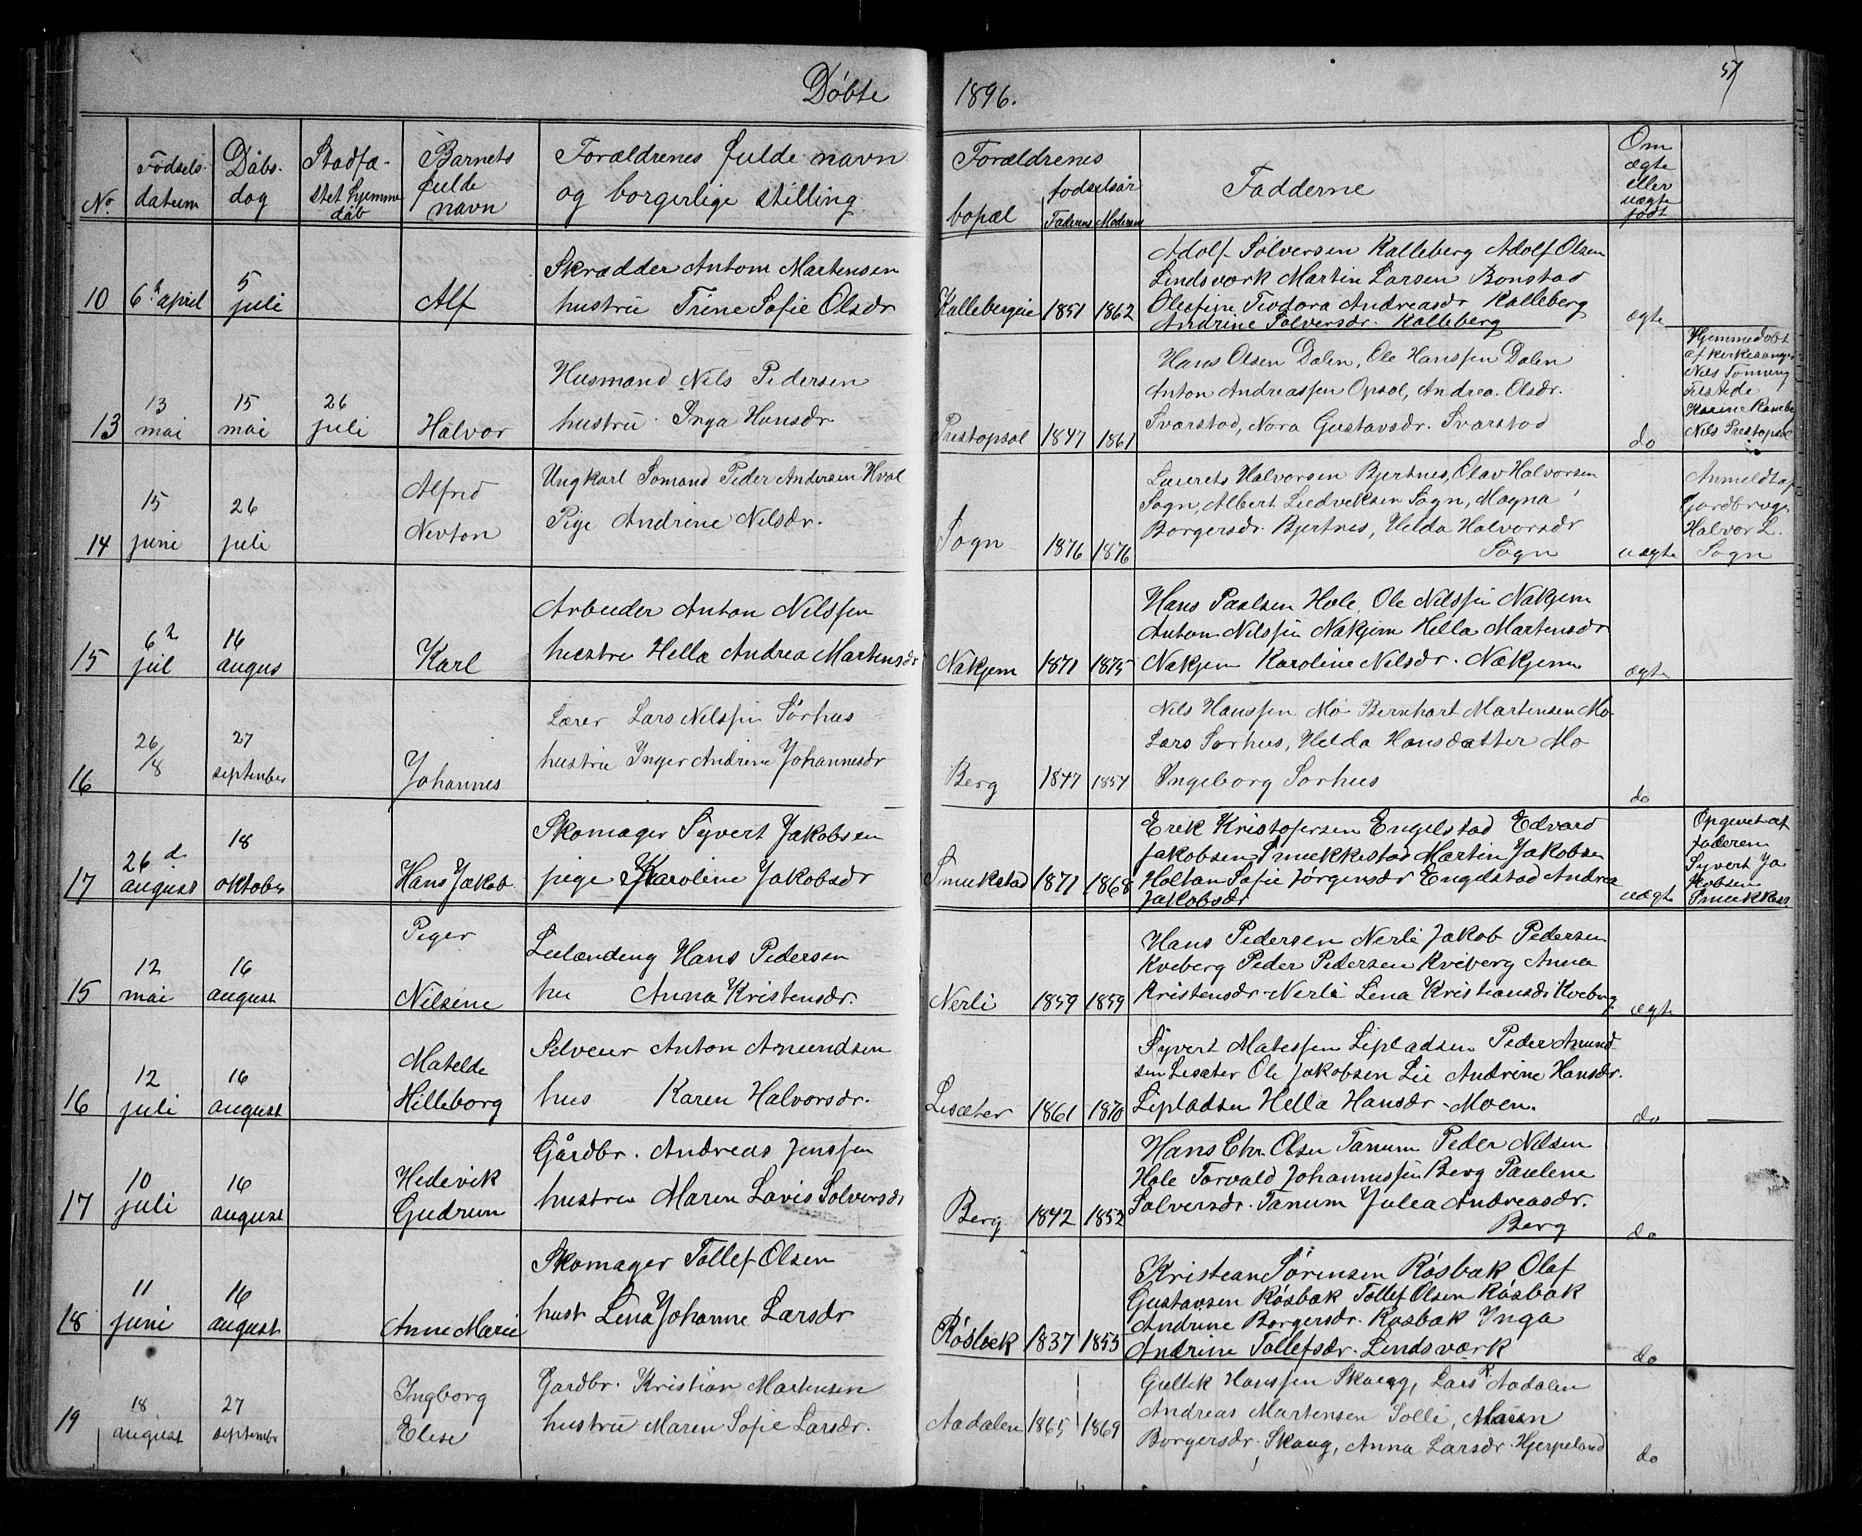 Døbte 1896.
57
No.
Fødsels-
datum
Dåbs-
dag
Stadfæ-
stet hjemme
dåb
Barnets
fulde
navn
Forældrenes fulde navn
og borgerlige stilling
Forældrenes
bopæl
fødselsår
Faderens Moderens
Fadderne
Om
ægte
eller
uægte
født
10
6te april
5
juli
Alf
Skrædder Anton Martensen
hustru Trine Sofie Olsdr
Kallebergeie 1851 1862
Adolf Sølversen Kalleberg Adolf Olsen
Lindsværk Martin Larsen Bonstad
Olefine Tiodora Andreasdr Kalleberg
Andrine Sølversdr. Kalleberg
ægte
13
13
mai
15
mai
26
juli
Halvor
Husmand Nils Pedersen
hustru Inga Hansdr.
Prestopsal 1847 1861
Hans Olsen Dalen, Ole Hanssen Dalen
Anton Andreassen Opsal, Andrea Olsdr.
Svarstad, Nora Gustavsdr. Svarstad
do
Hjemmedøbt
af kirkesanger
Nils Tønning
Tilstede
Karine
Nils Prestopsal
14
15
juni
26
juli
Alfrid
Nevton
Ungkarl Sømand Peder Andersen Hval
Pige Andrine Nilsdr.
Sogn 1876 1876
Laurets Halvorsen Bjertnes, Olav Halvorsen
Sogn, Albert Ludviksen Sogn, Magna
Borgersdr. Bjertnes, Helda Halvorsdr
Sogn
uægte
Anmeldt af
Gårdbruger
Halvor L.
Sogn
15
6te
jul
16
augus
Karl
Arbeider Anton Nilssen
hustru Hella Andrea Martensdr
Nakjem 1871 1875
Hans Paulsen Hole, Ole Nilssen Nakjem
Anton Nilssen Nakjem Hella Martensdr
Nakjem Karoline Nilsdr. Nakjem
ægte
16
26/8
27
september
Johannes
Lærer Lars Nilssen Sørhus
hustru Inger Andrine Johannesdr
Berg 1847 1854
Nils Hanssen Mo Bernhart Martensen Mo
Lars Sørhus, Helda Hansdatter Mo
Ingeborg Sørhus
do
17
26 d.
august
18
oktober
Hans Jakob
Skomager Syvert Jakobsen
pige Karoline Jakobsdr
Smukstad 1871 1868
Erik Kristofersen Engelstad Edvard
Jakobsen Smukkestad Martin Jakobsen
Holtan Sofie Jørgensdr Engelstad Andrea
Jakobsdr
uægte
Opgivet af
faderen
Syvert Ja
kobsen
15
12
mai
16
august
Piger
Nilsine
Leilænding Hans Pedersen
hu Anna Kristensdr.
Nerli 1859 1859
Hans Pedersen Nerli Jakob Pedersen
Kveberg Peder Pedersen Kviberg Anna
Kristensdr. Nerli Lena Kristiansdr Kveberg
ægte
16
12
juli
16
august
Matelde
Hilleborg
Selveier Anton Amundsen
hus Karen Halvorsdr.
Lisæter 1861 1870
Syvert Matessen Lipladsen Peder Amund-
sen Lisæter Ole Jakobsen Lie Andrine Hansdr.
Lipladsen Hella Hansdr. Moen.
do
17
10
juli
16
august
Hedevik
Gudrun
Gårdbr. Andreas Jenssen
hustru Maren Lovis Sølversdr
Berg 1842 1852
Hans Chr. Olsen Tanum Peder Nilsen
Hole Torvald Johannessen Berg Paulene
Sølversdr. Tanum Julea Andreasdr.
Berg
do
18
11
juni
16
august
Anne Marie
Skomager Tollef Olsen
hust Lena Johanne Larsdr
Røsbæk 1837 1855
Kristean Sørensen Røsbak Olaf
Gustavsen Røsbak Tollef Olsen Røsbak
Andrine Borgersdr. Røsbak Inga
Andrine Tollefsdr. Lendsværk
do
19
18
august
27
septembr
Ingborg
Elise
Gårdbr. Kristian Martensen
hustru Maren Sofie Larsdr.
Aadalen 1865 1869
Gullek Hanssen Skaug, Lars R. Aadalen
Andreas Martensen Solli, Maren
Borgersdr. Skaug, Anna Larsdr. Hjerpeland
do